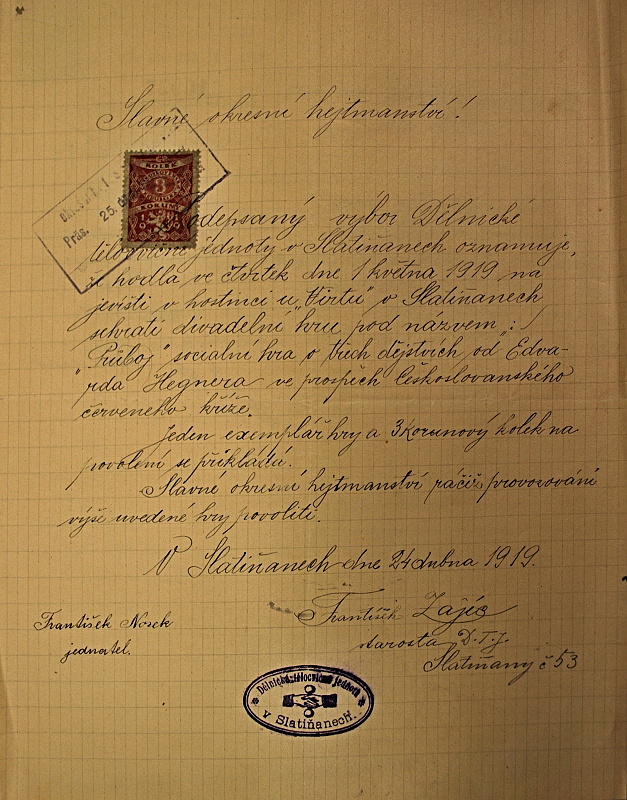 Slavné okresní hejtmanství!
KOLEK
3
KORUNY
1919
Prás. 25.
odepsaný výbor Dělnické
tělocvičné jednoty v Slatiňanech oznamuje,
že hodlá ve čtvrtek dne 1 května 1919 na
jevišti v hostinci u „Virtů" v Slatiňanech
sehráti divadelní hru pod názvem „:
„Průboj" socialní hra o třech dějstvích od Edva-
rda Hegnera ve prospěch Českoslovanského
červeneho kříže.
Jeden exemplář hry a 3 korunový kolek na
povolení se přikládá.
Slavné okresní hejtmanství ráčiž provozování
výše uvedené hry povoliti.
V Slatiňanech dne 24 dubna 1919.
František Nosek
jednatel.
František Zajíc
starosta D.T.J.
Slatiňany č 53
Dělnická tělocvičná jednota
v Slatiňanech.